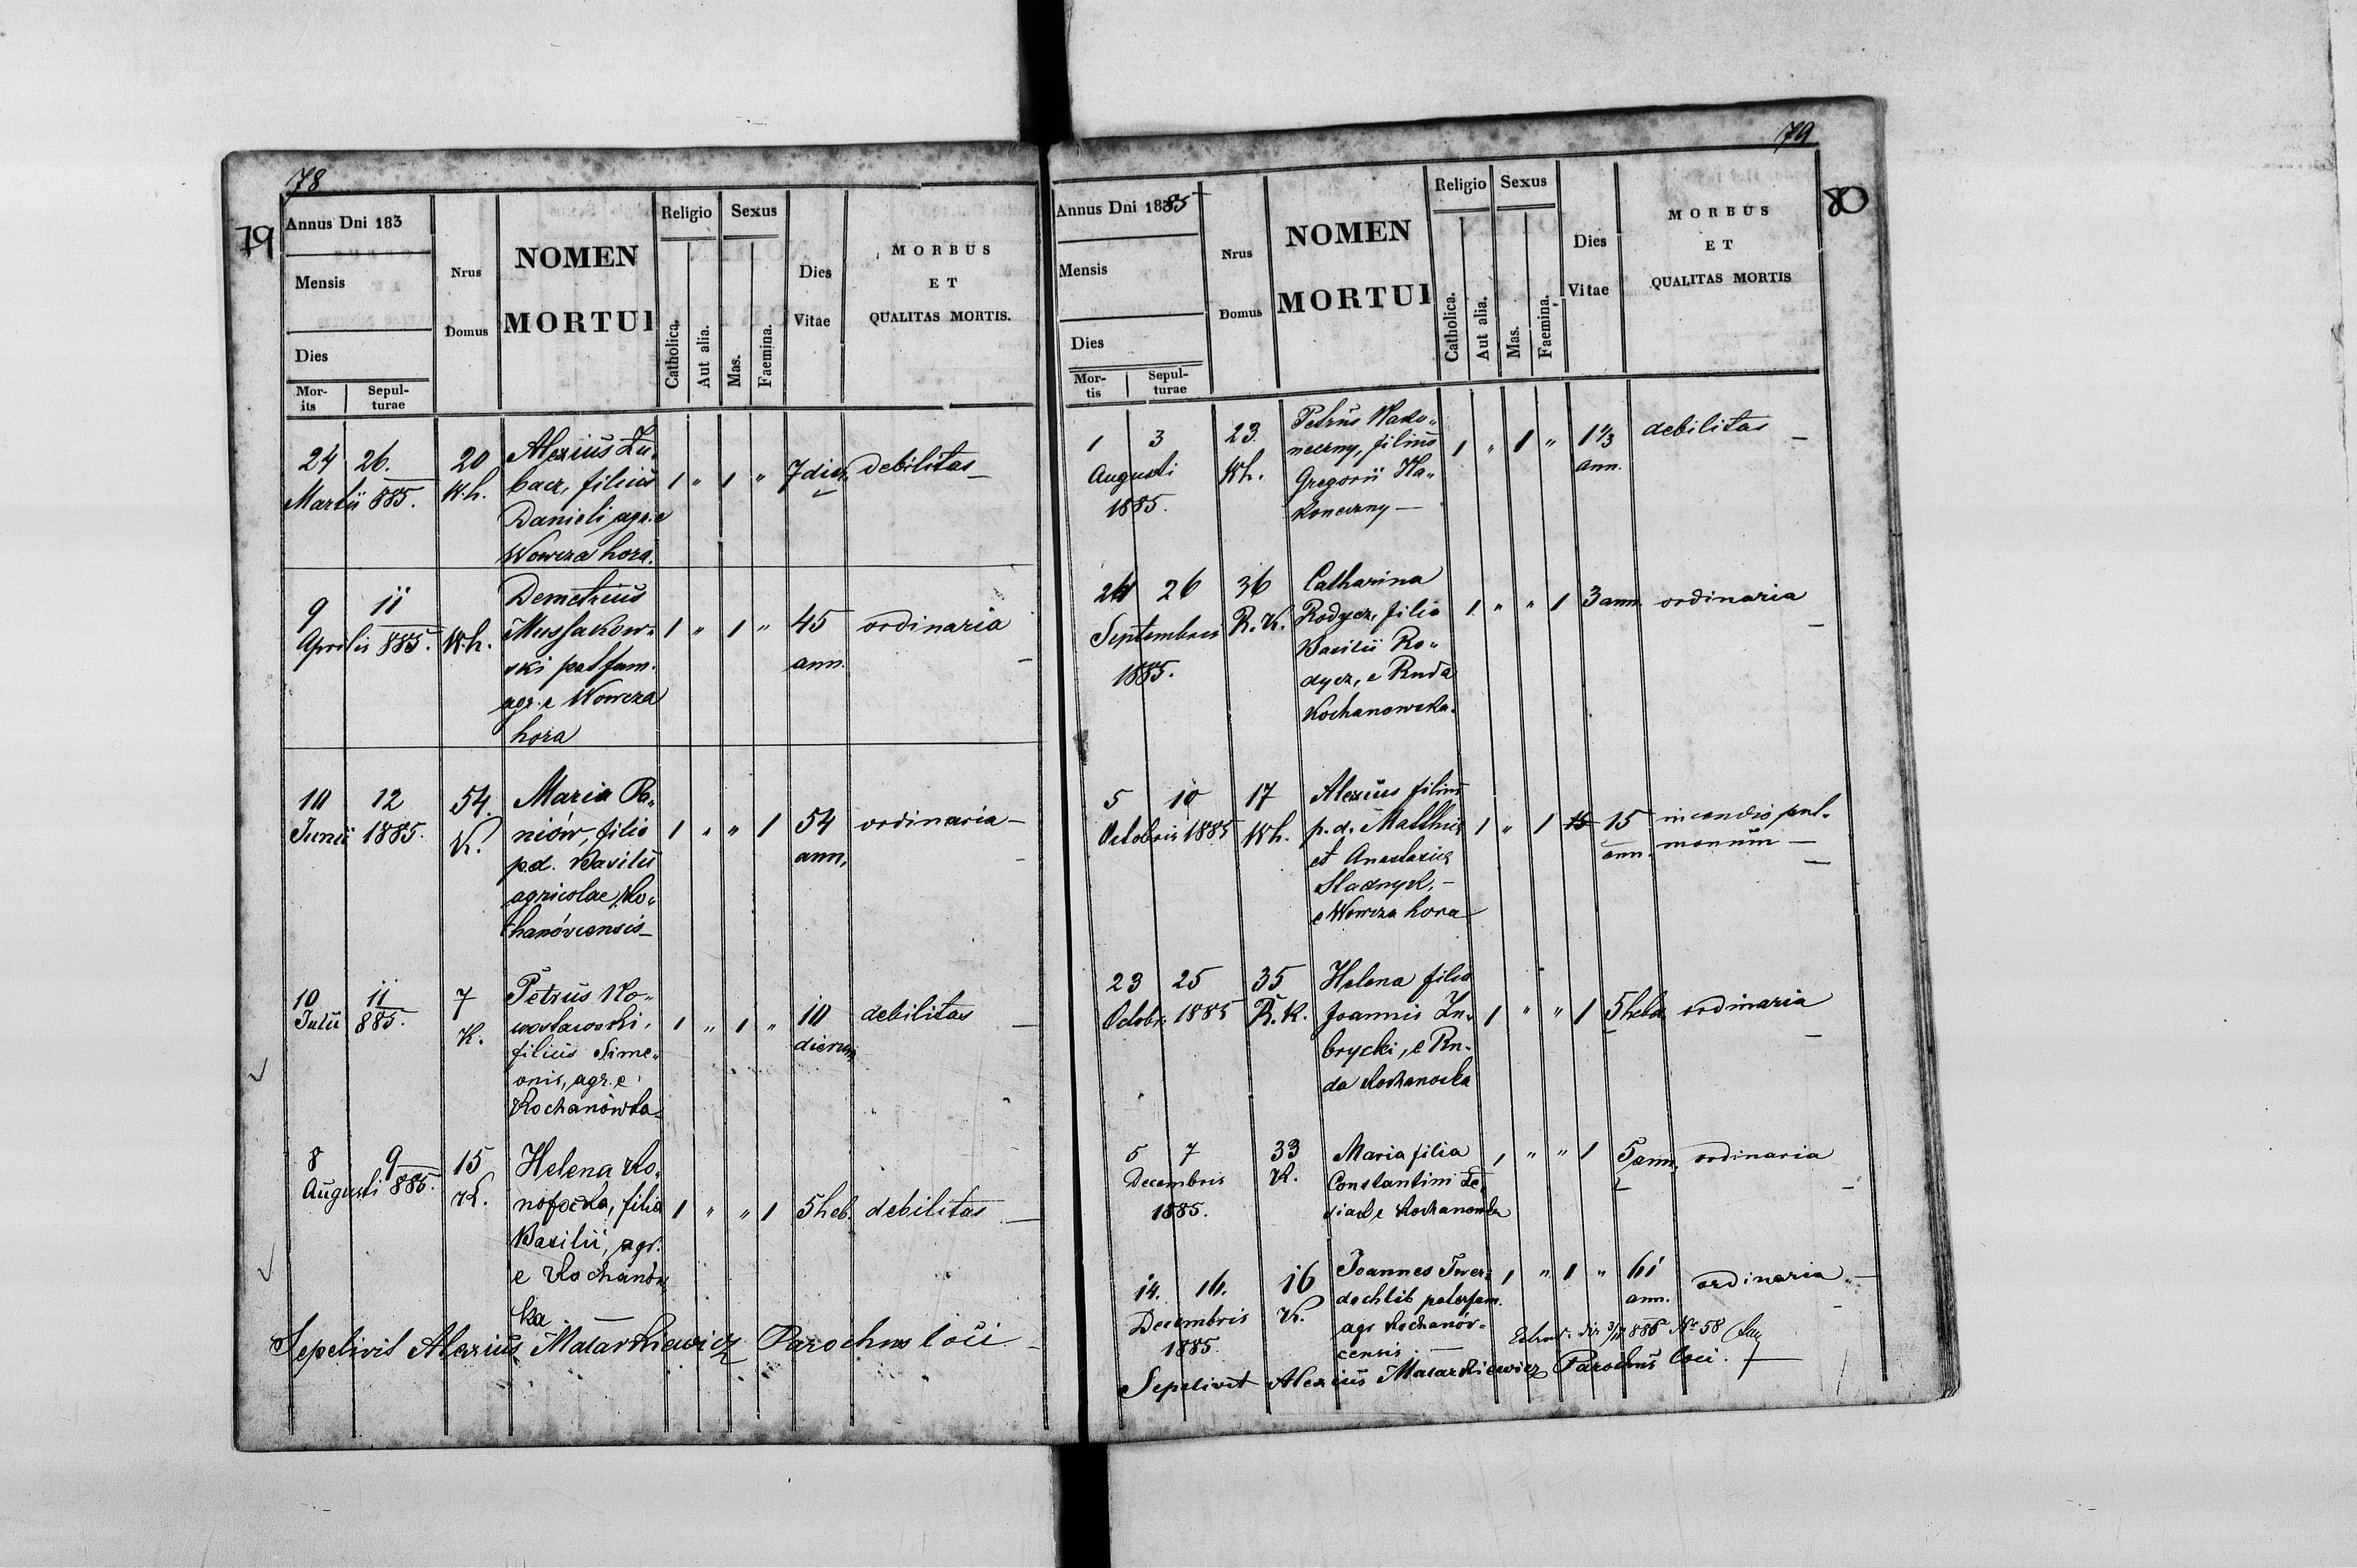 78
79
Annus Dni 183
Mensis
Dies
Mor-
its
Sepul-
turae
Nrus
Domus
NOMEN
MORTUI
Religio
Catholica.
Aut alia.
Sexus
Mas.
Faemina.
Dies
Vitae
MORBUS
ET
QUALITAS MORTIS.
24 26. 20 Alexius Zu„
Martii 885. W.h. bacz, filius 1 „ 1 „ 7 dier. debilitas
Danieli agr. e
Wowcza hora.
9 11 Demetrius
Aprilis 885. W.h. Mussakow„ 1 „ 1 „ 45 ordinaria
ski pat fam. ann.
agr. e Wowcza
hora
10 12 54. Maria Pa„
Junii 1885. K. niów, filia 1 „ „ 1 54 ordinaria
p.d. Basilii ann.
agricolae Ko„
hanóvcensis
10 11 7 Petrus No„
Julii 885. K. wosławski, 1 „ 1 „ 10 debilitas
filius Sime„ dierum
onis, agr. e
Kochanówka
8 9 15 Helena Ko„
Augusti 885. K. nofocka, filia 1 „ „ 1 5 heb. debilitas
Basilii, agr.
e Kochanów„
ka
Sepelivit Alexius Matarkiewicz Parochus loci
79
80
Annus Dni 1885
Mensis
Dies
Mor-
tis
Sepul-
turae
Nrus
Domus
NOMEN
MORTUI
Religio
Catholica.
Aut alia.
Sexus
Mas.
Faemina.
Dies
Vitae
MORBUS
ET
QUALITAS MORTIS
1 3 23. Petrus Nako„
Augusti Wh. neczny, filius 1 „ 1 „ 1 1/3 debilitas
1885. Gregorii Na„ ann.
koneczny
24 26 36 Catharina
Septembris R.K. Rodycz, filia 1 „ „ 1 3 ann. ordinaria
1885. Basilii Ro„
dycz, e Ruda
Kochanowska.
5 10 17 Alexius filius
Octobris 1885 Wh. p.d. Matthiæ 1 „ 1 15 15 incendio pul„
et Anastasiæ ann. monum
Sladnyk,
e Wowcza hora
23 25 35 Helena filia
Octobr. 1885 R.K. Joannis Zu„ 1 „ „ 1 5 hebd. ordinaria
brycki, e Ru„
da Kochanocka
5 7 33 Maria filia 1 „ „ 1 5 ann. ordinaria
Decembris K. Constantini
1885. e Kochanowka
14. 16. 16 Joannes Twer„ 1 „ 1 „ 61 ordinaria
Decembris K. dochlib paterfam. ann.
1885 agr Kochanów„
censis 886 No 58
Sepelivit Alexius Matarkiewicz Parochus loci.